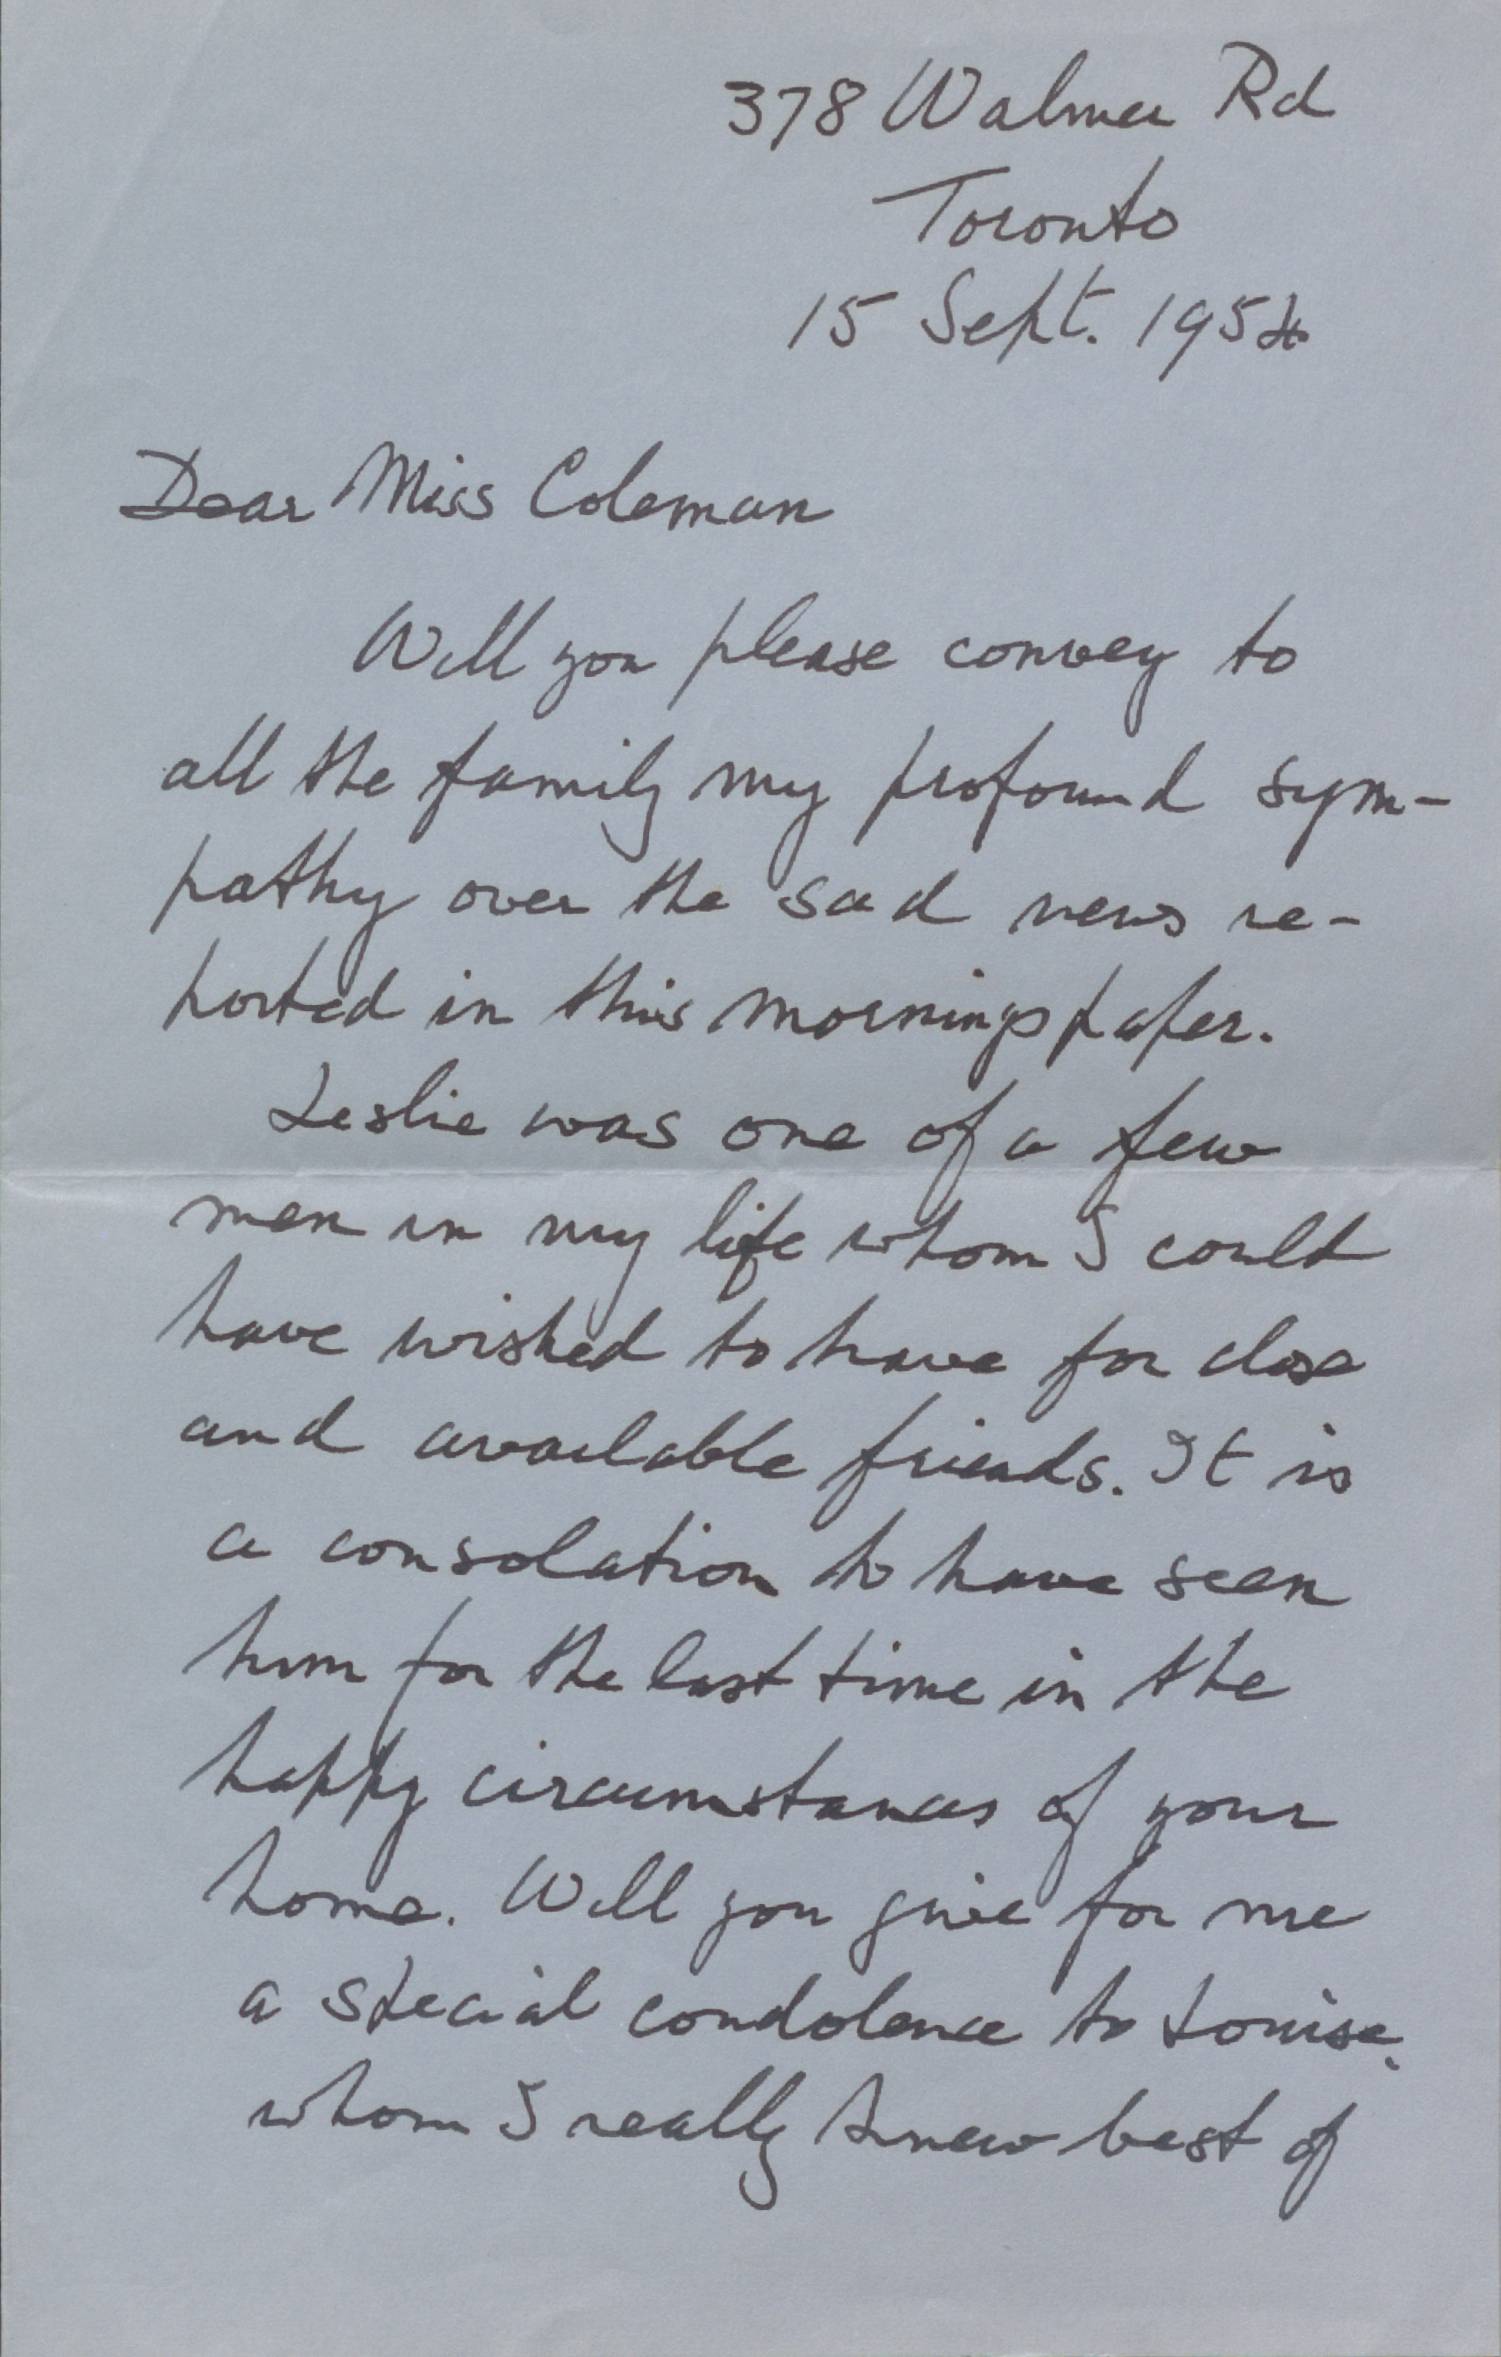 378 Walmer Rd
Toronto
15 Sept. 1954
Dear Miss Coleman
Will you please convey to
all the family my profound sym-
pathy over the sad news re-
ported in this mornings paper.
Leslie was one of a few
men in my life whom I could
have wished to have for close
and available friends. It is
a consolation to have seen
him for the last time in the
happy circumstances of your
home. Will you give for me
a special condolence to Louise,
whom I really knew best of